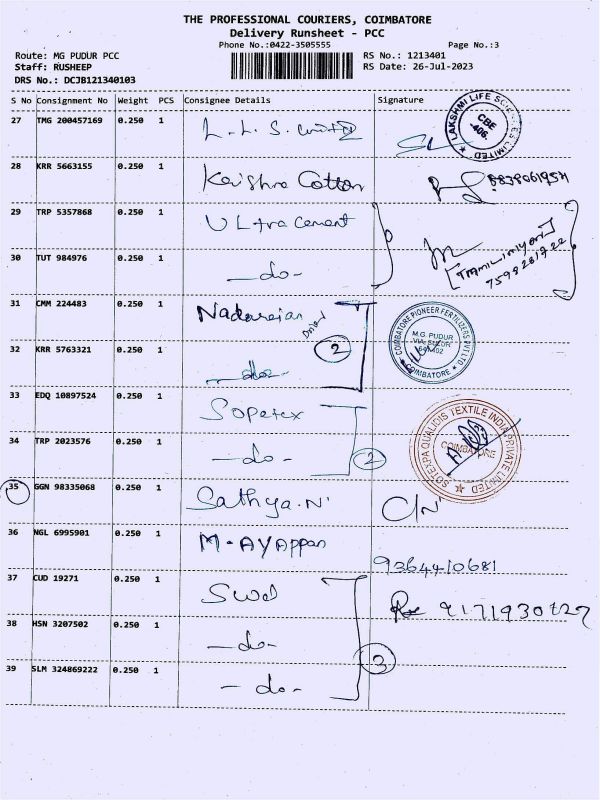 THE PROFESSIONAL COURIERS, COIMBATORE
Delivery Runsheet - PCC
Phone No.:0422-3505555
Page No.:3
Route: MG PUDUR PCC
RS No.: 1213401
Staff: RUSHEEP
RS Date: 26-Jul-2023
DRS No.: DCJB121340103
S No Consignment No Weight PCS Consignee Details Signature
27 TMG 200457169 0.250 1 L.L.S. Limited
LAKSHMI LIFE SCIENCES LIMITED
CBE
-406.
28 KRR 5663155 0.250 1 Krishna Cotton
29 TRP 5357868 0.250 1 ULtra cement
30 TUT 984976 0.250 1 -do-
7598281722
31 CMM 224483 0.250 1 Nadarajan
2
COIMBATORE PIONEER FERTILIZERS PVT LTD
M.G. PUDUR
VIA SULUR
641 402
COIMBATORE
32 KRR 5763321 0.250 1 -do-
33 EDQ 10897524 0.250 1 Sopetex
34 TRP 2023576 0.250 1 -do- 2
SOTEXPA QUALIDIS TEXTILE INDIA PRIVATE LIMITED
COIMBATORE
35 GGN 98335068 0.250 1 Sathya.N C/N
36 NGL 6995901 0.250 1 M.AYAPPAN 9364410681
37 CUD 19271 0.250 1
38 HSN 3207502 0.250 1 -do-
3
39 SLM 324869222 0.250 1 -do-